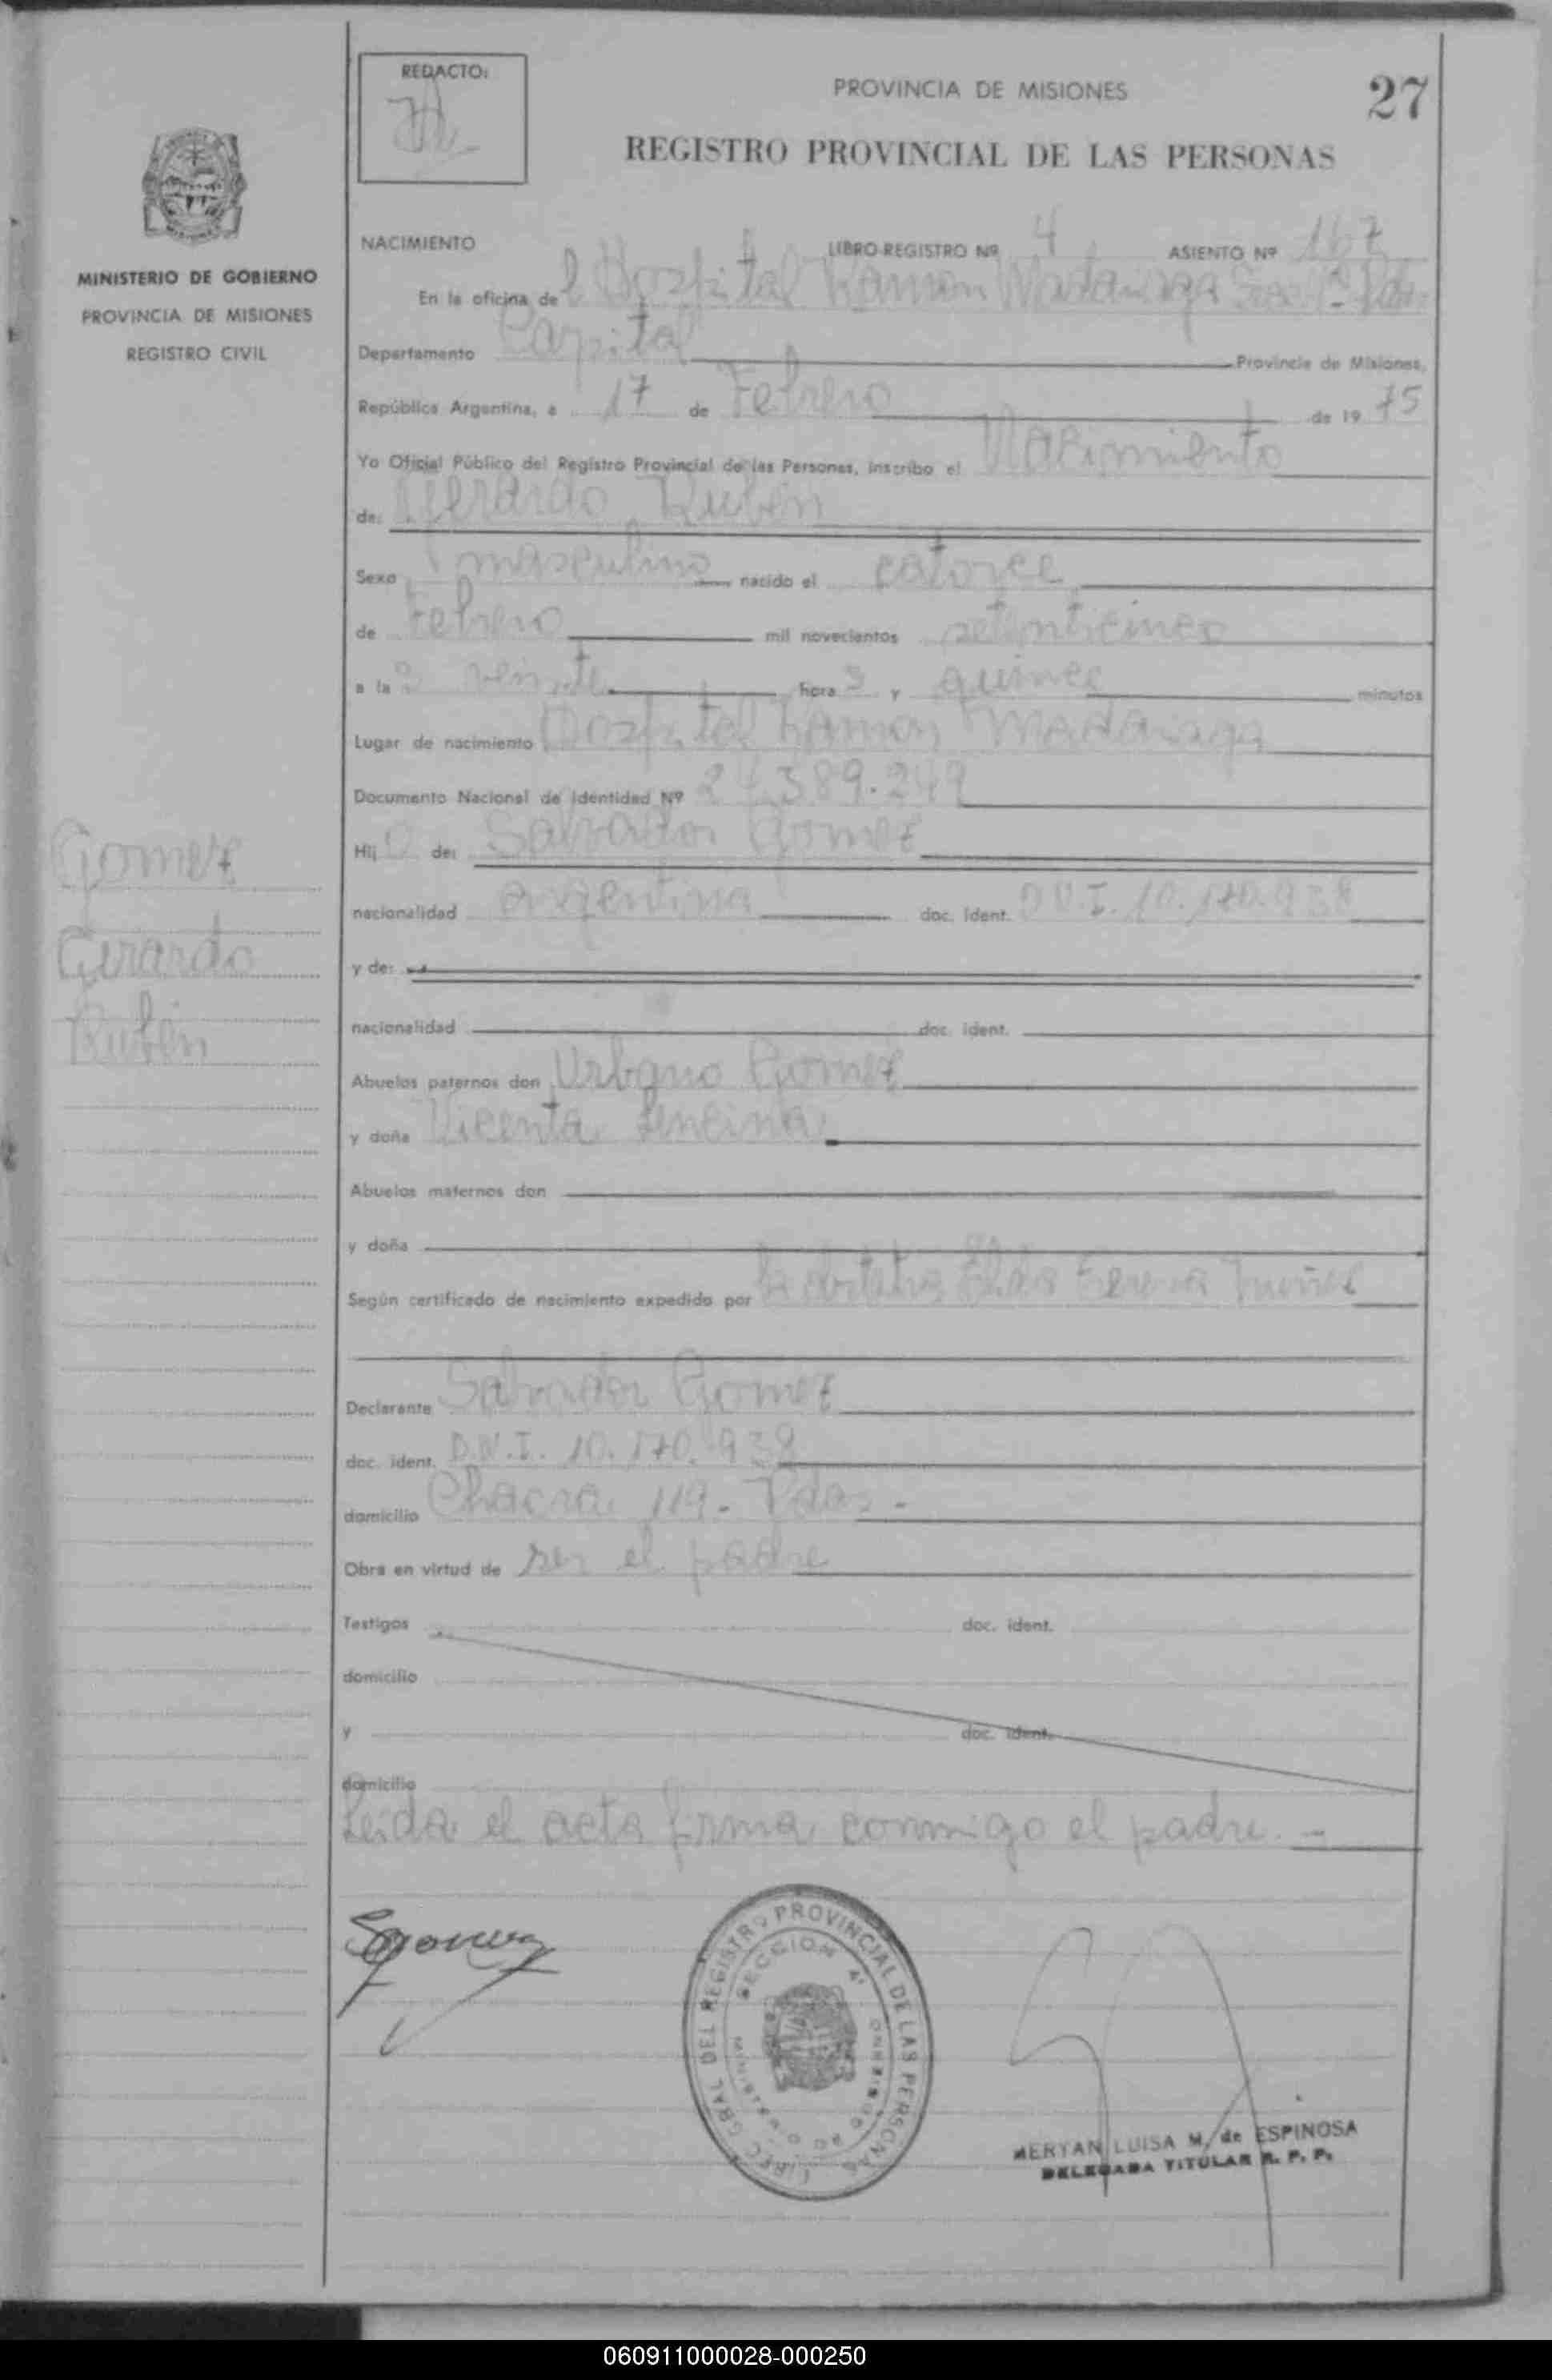 REDACTO:
PROVINCIA DE MISIONES
27
REGISTRO PROVINCIAL DE LAS PERSONAS
MINISTERIO DE GOBIERNO
PROVINCIA DE MISIONES
REGISTRO CIVIL
NACIMIENTO LIBRO-REGISTRO Nº 4 ASIENTO Nº 167
En la oficina del Hospital Ramon Madariaga
Departamento Capital Provincia de Misiones,
República Argentina, a 17 de Febrero de 1975
Yo Oficial Público del Registro Provincial de las Personas, inscribo el Nacimiento
de: Gerardo Rubén
Sexo masculino nacido el catorce
de Febrero mil novecientos setenticinco
a las veinte horas y quince minutos
Lugar de nacimiento Hospital Ramon Madariaga
Documento Nacional de Identidad Nº 24.389.249
Hijo de: Salvador Gomez
nacionalidad argentina doc. ident. D.N.I. 10.170.938
y de:
nacionalidad doc. ident.
Abuelos paternos don Urbano Gomez
y doña Vicenta Encina
Abuelos maternos don
y doña
Según certificado de nacimiento expedido por la obstetra Elda
Declarante Salvador Gomez
doc. ident. D.N.I. 10.170.938
domicilio Chacra 119 - Pdas -
Obra en virtud de ser el padre
Testigos doc. ident.
domicilio
y doc. ident.
domicilio
Leida el acta firma conmigo el padre. -
Gomez
Gerardo
Rubén
SGomez
DIREC. GRAL DEL REGISTRO PROVINCIAL DE LAS PERSONAS
SECCION 4ª
MINISTERIO DE GOBIERNO
MERYAN LUISA M. de ESPINOSA
DELEGADA TITULAR R. P. P.
060911000028-000250